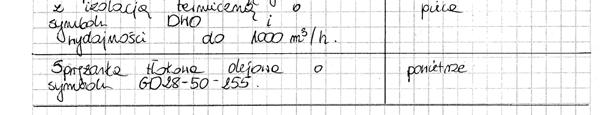 z izolacją termiczną o piece
symbolu DHO i
wydajności do 1000 m³/h.
Sprężarka tłokowa olejowa o powietrze
symbolu GD28-50-255.